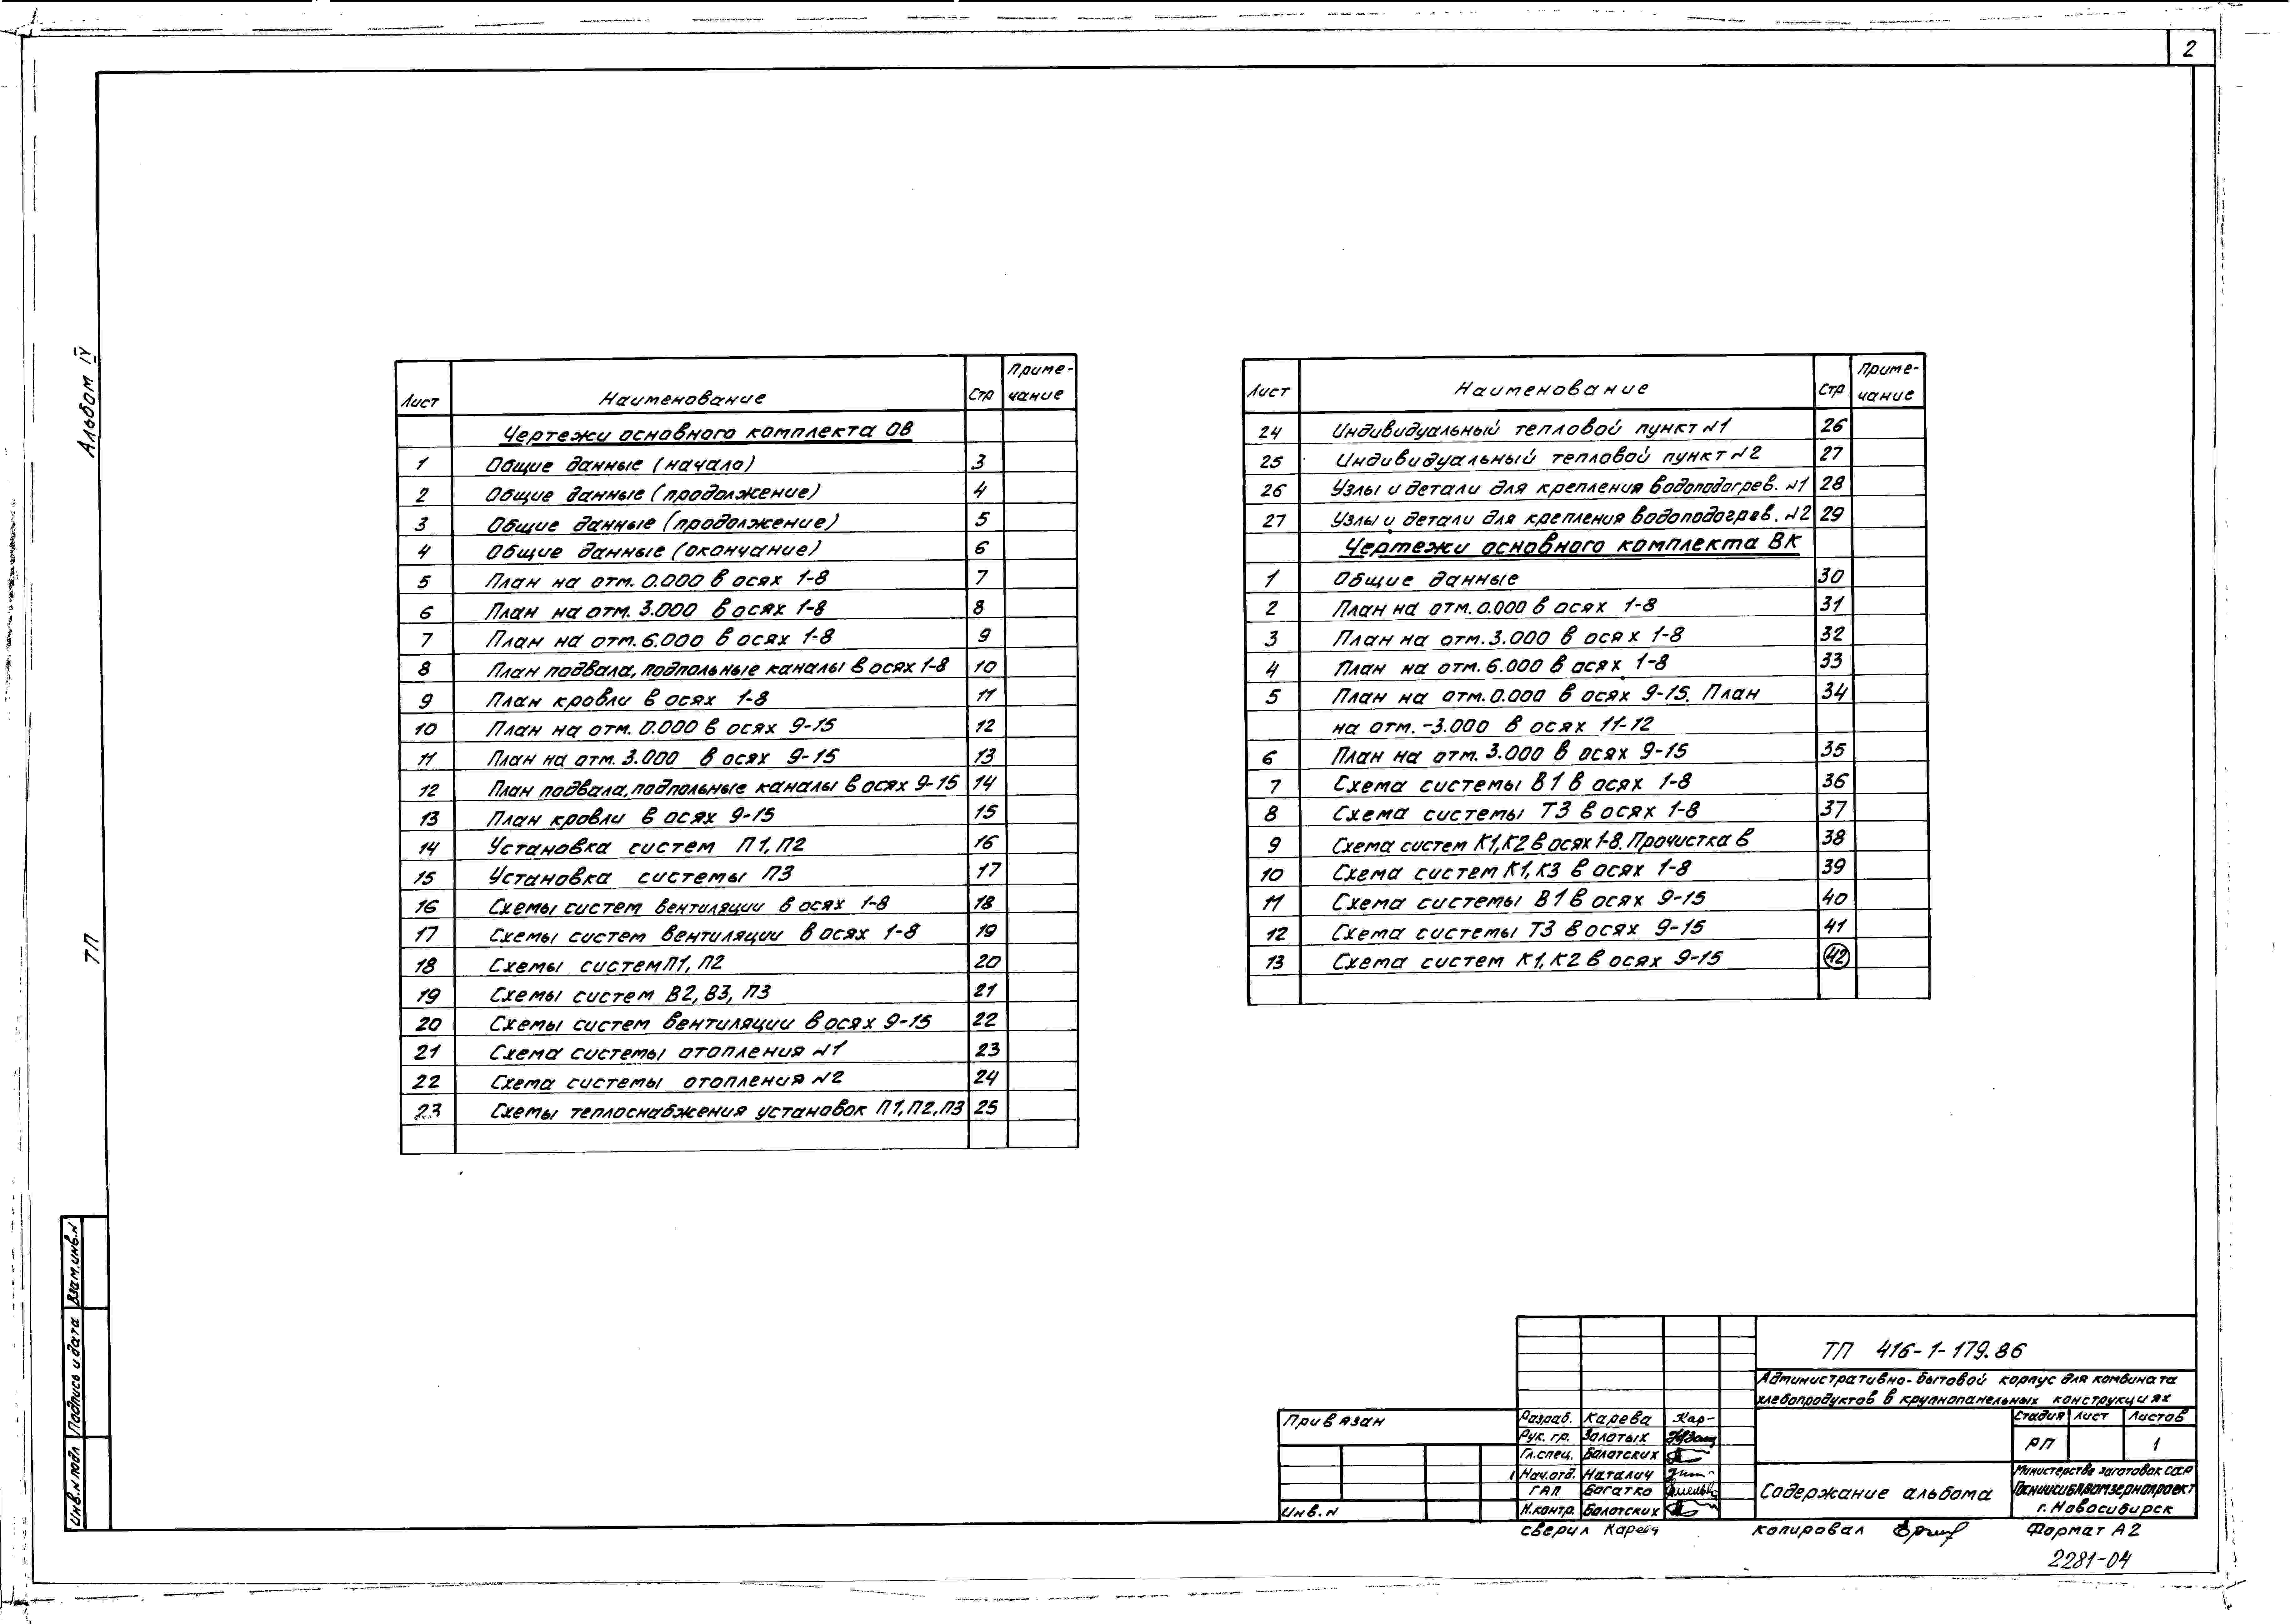 2
Альбом IV
ТП
Лист Наименование Стр Приме-
чание
Чертежи основного комплекта ОВ
1 Общие данные (начало) 3
2 Общие данные (продолжение) 4
3 Общие данные (продолжение) 5
4 Общие данные (окончание) 6
5 План на отм. 0.000 в осях 1-8 7
6 План на отм. 3.000 в осях 1-8 8
7 План на отм. 6.000 в осях 1-8 9
8 План подвала, подпольные каналы в осях 1-8 10
9 План кровли в осях 1-8 11
10 План на отм. 0.000 в осях 9-15 12
11 План на отм. 3.000 в осях 9-15 13
12 План подвала, подпольные каналы в осях 9-15 14
13 План кровли в осях 9-15 15
14 Установка систем П1, П2 16
15 Установка системы П3 17
16 Схемы систем вентиляции в осях 1-8 18
17 Схемы систем вентиляции в осях 1-8 19
18 Схемы систем П1, П2 20
19 Схемы систем В2, В3, П3 21
20 Схемы систем вентиляции в осях 9-15 22
21 Схема системы отопления N1 23
22 Схема системы отопления N2 24
23 Схемы теплоснабжения установок П1, П2, П3 25
Лист Наименование Стр Приме-
чание
24 Индивидуальный тепловой пункт N1 26
25 Индивидуальный тепловой пункт N2 27
26 Узлы и детали для крепления водоподогрев. N1 28
27 Узлы и детали для крепления водоподогрев. N2 29
Чертежи основного комплекта ВК
1 Общие данные 30
2 План на отм. 0.000 в осях 1-8 31
3 План на отм. 3.000 в осях 1-8 32
4 План на отм. 6.000 в осях 1-8 33
5 План на отм. 0.000 в осях 9-15. План 34
на отм. -3.000 в осях 11-12
6 План на отм. 3.000 в осях 9-15 35
7 Схема системы В1 в осях 1-8 36
8 Схема системы Т3 в осях 1-8 37
9 Схема систем К1, К2 в осях 1-8. Прочистка в 38
10 Схема систем К1, К3 в осях 1-8 39
11 Схема системы В1 в осях 9-15 40
12 Схема системы Т3 в осях 9-15 41
13 Схема систем К1, К2 в осях 9-15 42
Взам. инв. N
Подпись и дата
Инв. N подл
Привязан
Инв. N
Разраб. Карева Кар-
Рук. гр. Золотых
Гл. спец. Болотских
Нач. отд. Наталич
ГАП Богатко
Н. контр. Болотских
ТП 416-1-179.86
Административно-бытовой корпус для комбината
хлебопродуктов в крупнопанельных конструкциях
Стадия Лист Листов
РП 1
Содержание альбома
Министерство заготовок СССР
г. Новосибирск
сверил Карева копировал Формат А2
2281-04